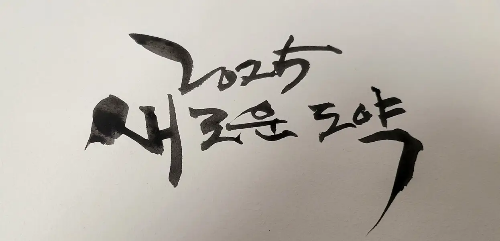 2025
새로운 도약